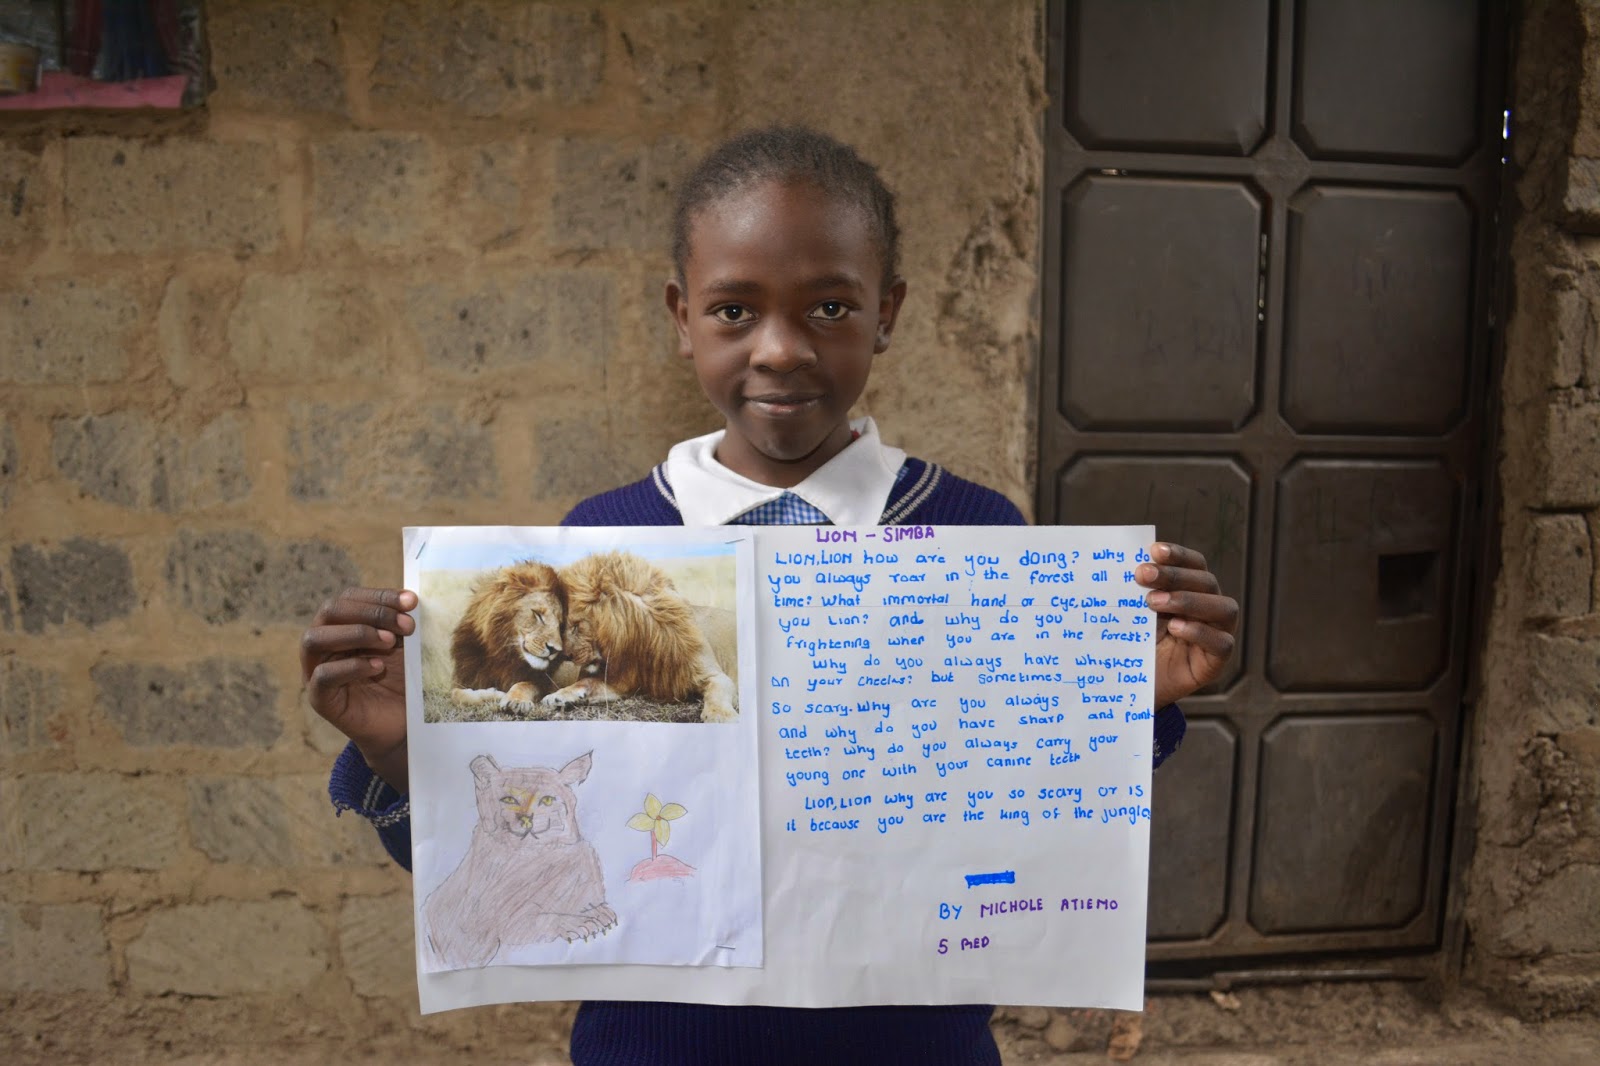 LION - SIMBA
LION, LION how are you doing? Why do
you always roar in the forest all the
time? What immortal hand or eye, who made
you Lion? and why do you look so
frightening when you are in the forest?
Why do you always have whiskers
on your cheeks? but sometimes you look
so scary. Why are you always brave?
and why do you have sharp and
teeth? Why do you always carry your
young one with your canine teeth
Lion, Lion why are you so scary or is
it because you are the king of the jungle?
BY MICHOLE ATIEMO
5 RED